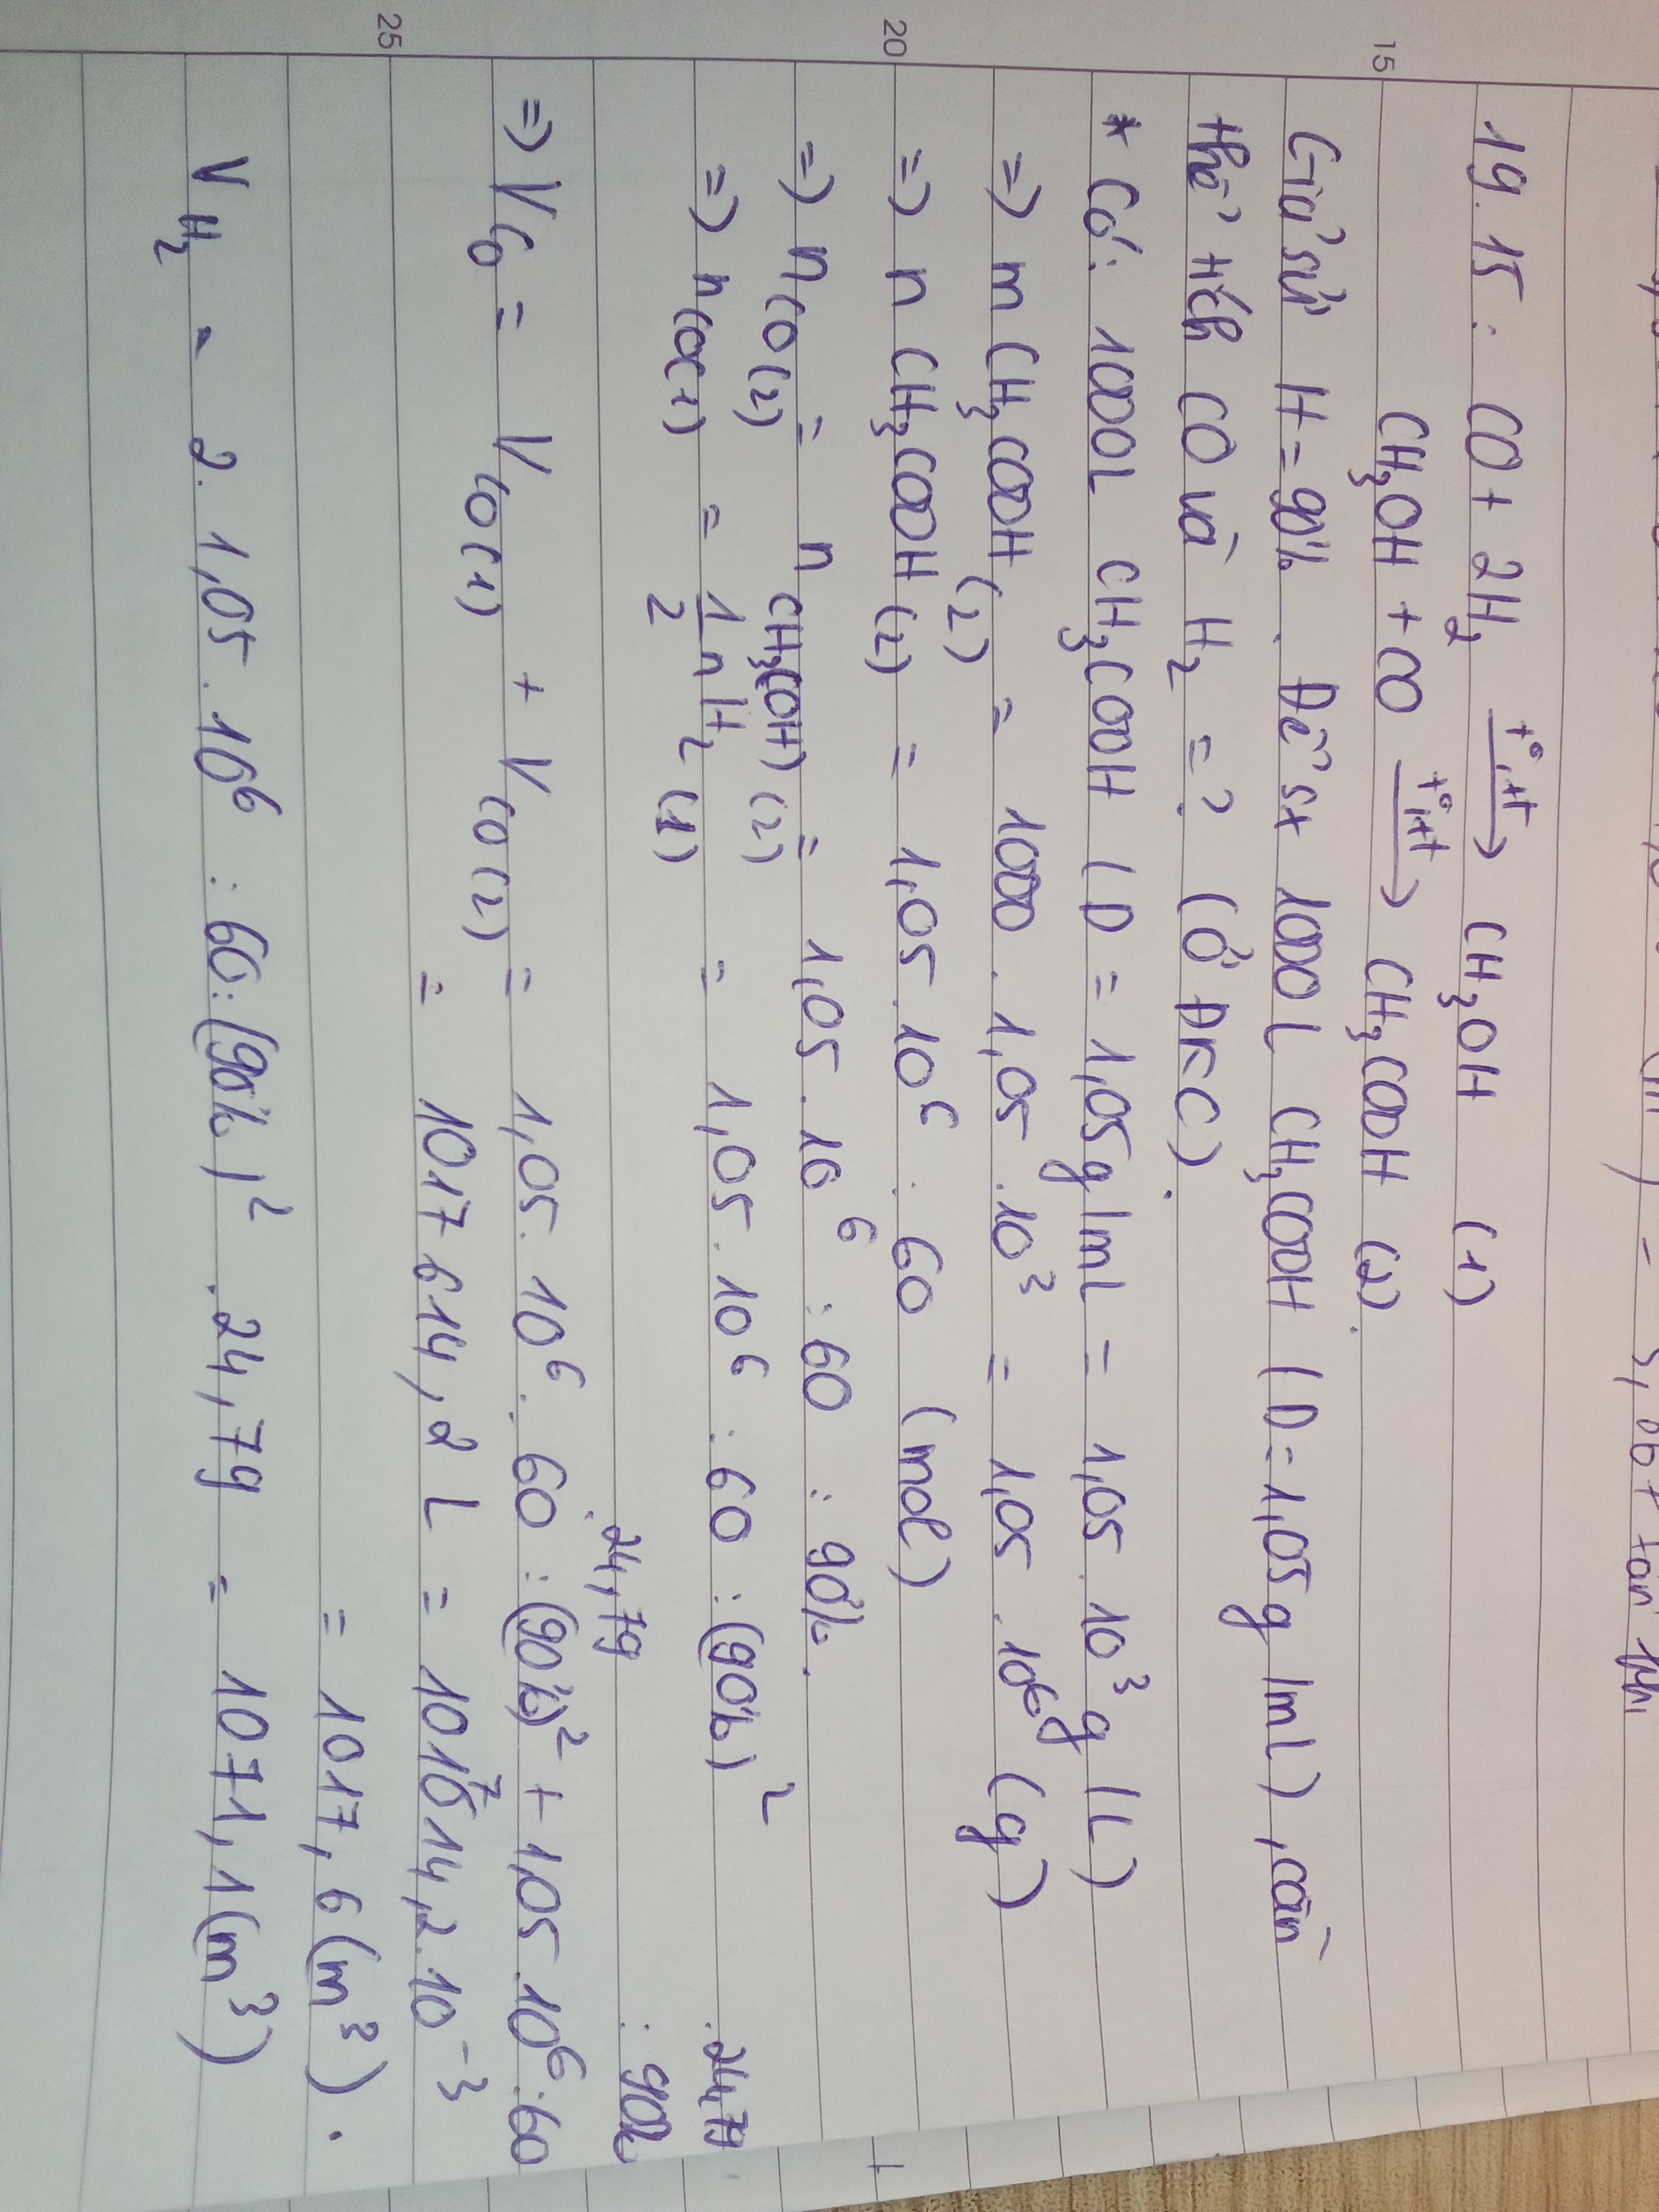 19.15: CO + 2H₂ —t°, xt→ CH₃OH (1)
CH₃OH + CO —t°, xt→ CH₃COOH (2).
Giả sử H = 90%. Để sx 1000 L CH₃COOH (D = 1,05g/mL), cần
thể tích CO và H₂ = ? (Ở ĐKC).
* Có: 1000L CH₃COOH (D = 1,05g/mL = 1,05.10³ g/L)
=> m CH₃COOH (2) = 1000 . 1,05 . 10³ = 1,05 . 10⁶ (g)
=> n CH₃COOH (2) = 1,05 . 10⁶ : 60 (mol)
=> n CO(2) = n CH₃COOH (2) = 1,05 . 10⁶ : 60 : 90%.
=> n CO(1) = 1/2 n H₂ (1) = 1,05 . 10⁶ : 60 : (90%)²
.24,79 .24,79
=> V CO = V CO(1) + V CO(2) = 1,05.10⁶ : 60 : (90%)² + 1,05.10⁶ : 60 : 90%
= 1017614,2 L = 1017614,2.10⁻³
= 1017,6 (m³).
V H₂ = 2. 1,05. 10⁶ : 60 : (90%)² . 24,79 = 1071,1 (m³)
25
20
15